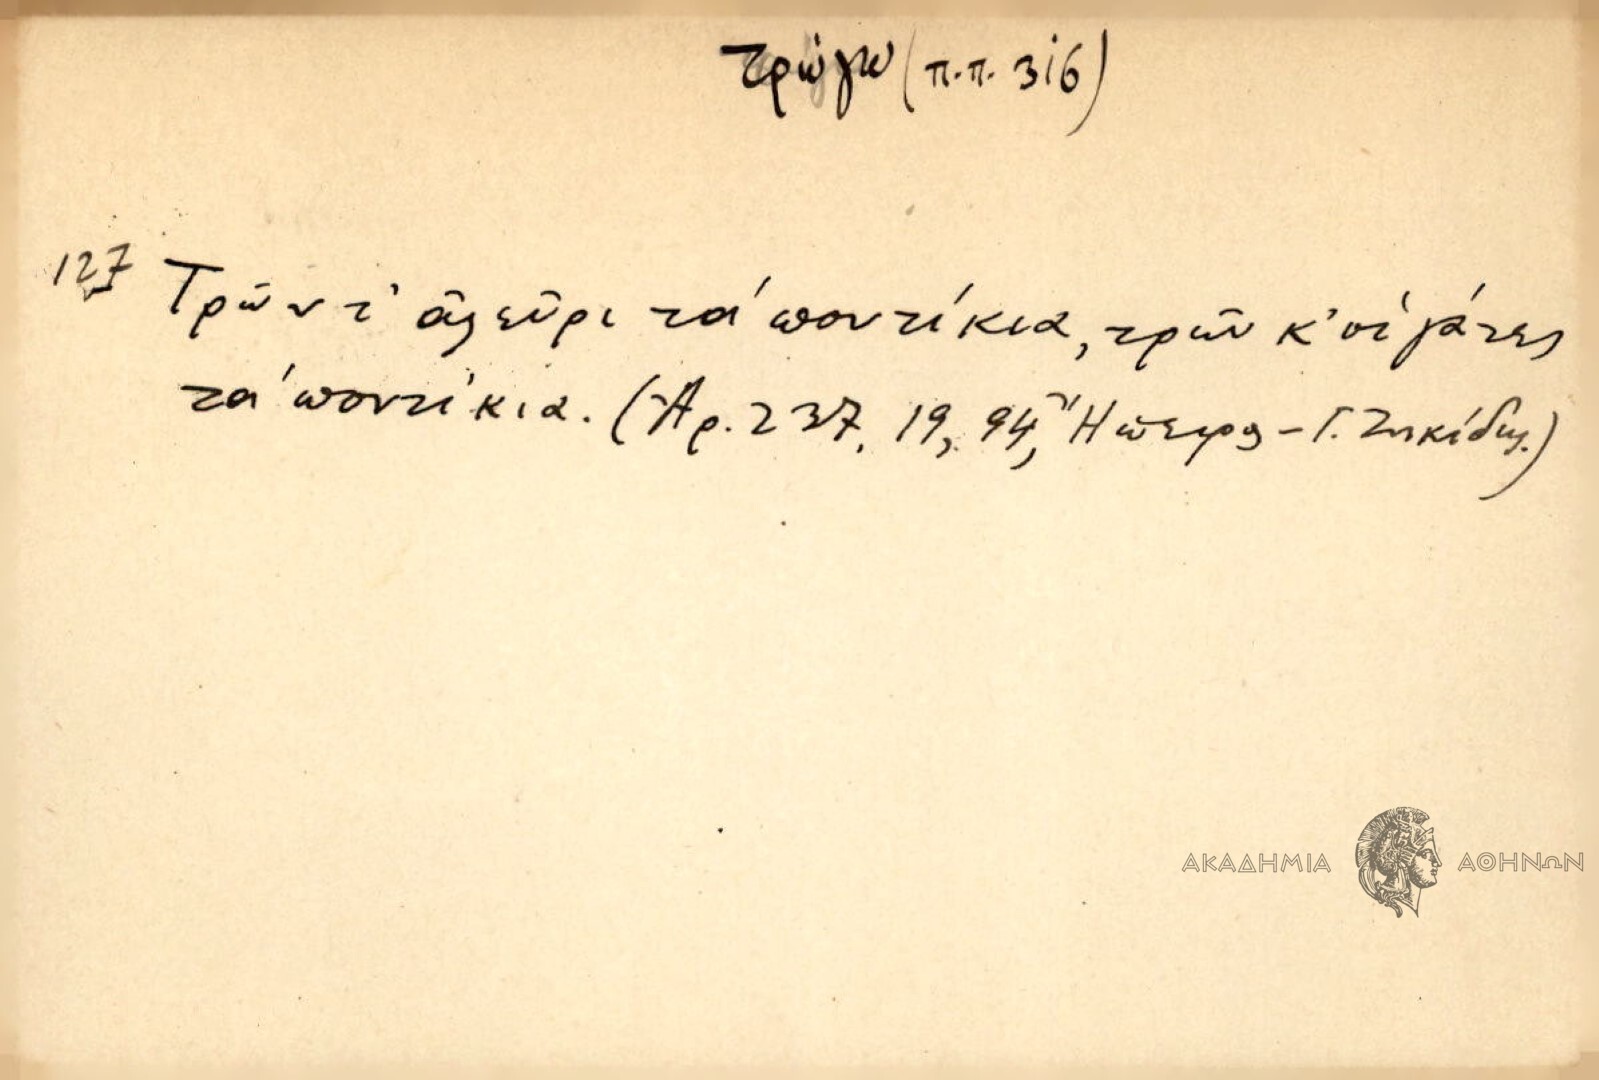 τρώγω (π.π. 316)
127 Τρῶν τ' ἀλεῦρι τὰ ποντίκια, τρῶν κ' οἱ γάτες
τὰ ποντίκια. (Ἀρ. 237, 19, 94, Ἤπειρος – Γ. Ζηκίδης.)
ΑΚΑΔΗΜΙΑ ΑΘΗΝΩΝ